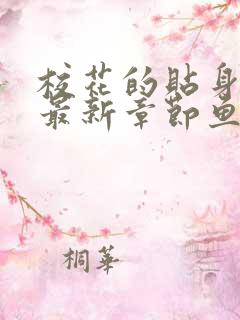 校花的贴身
最新章节鱼
桐華